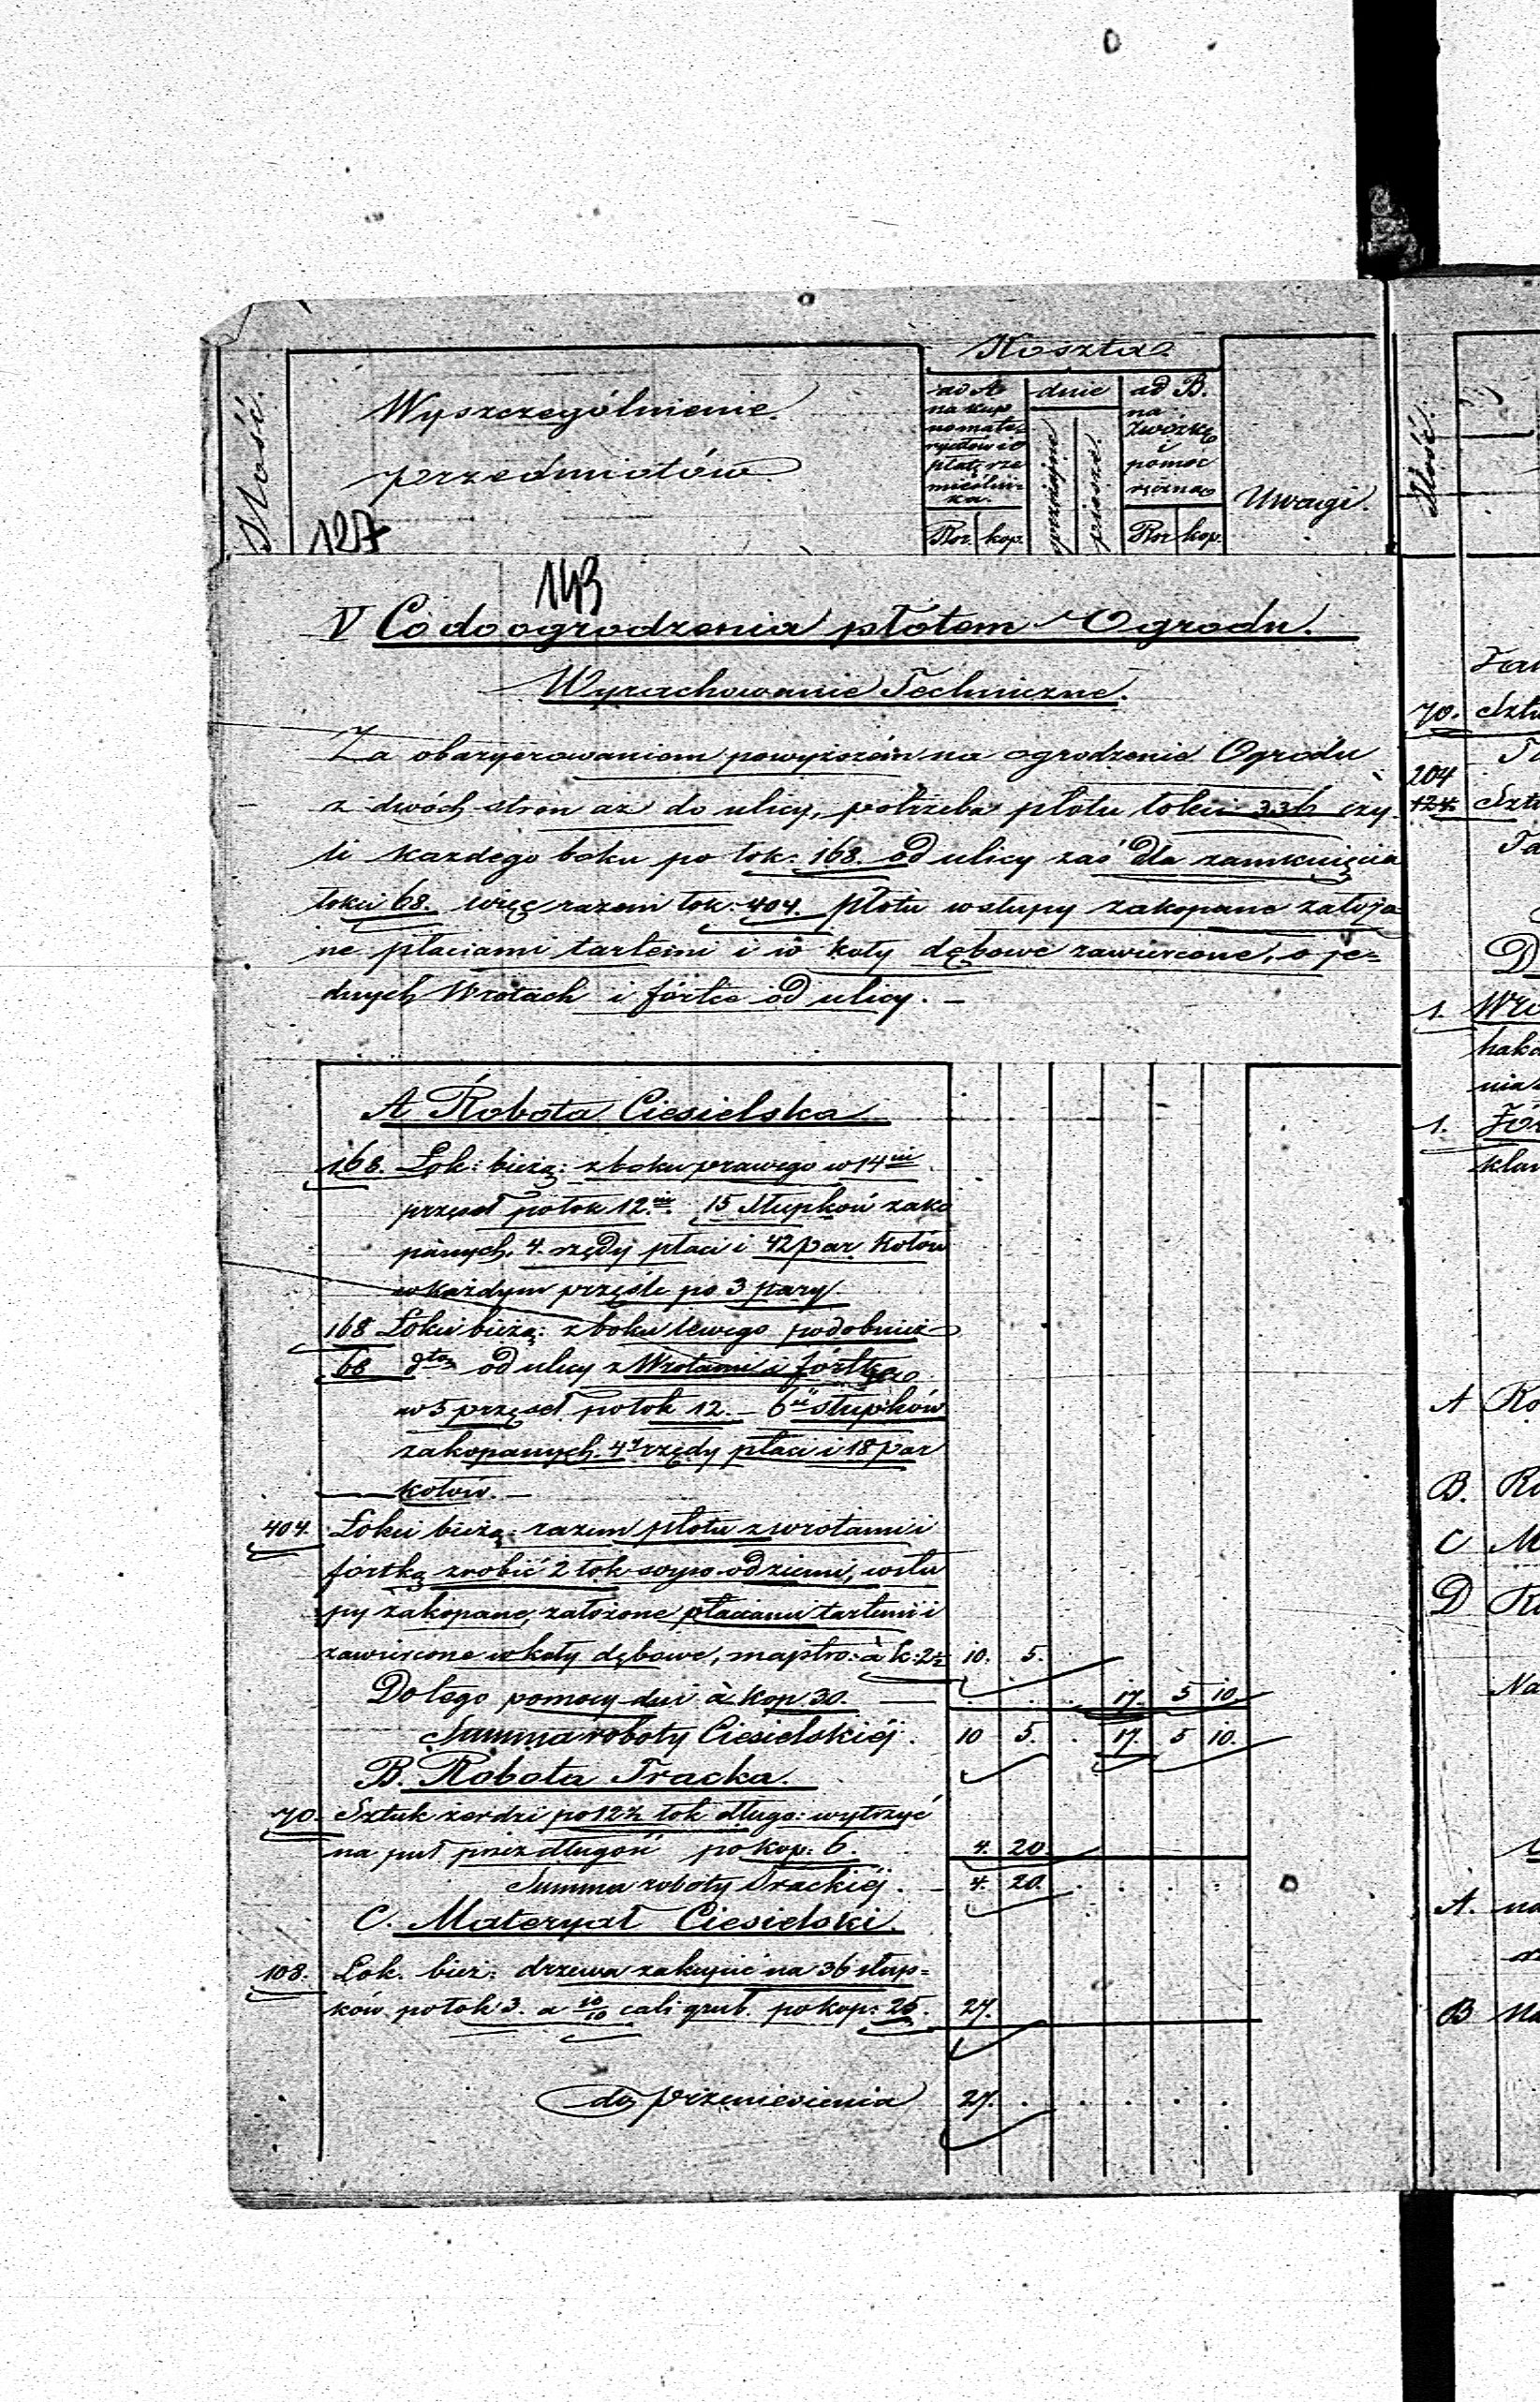 Ilość.
Wyszczególnienie
przedmiotów
127
Koszta
ad A
na kup
no mate
ryałów i o
płatę rze
mieślni-
ka.
Rsr. kop.
dnie
pociągłowe
piesze.
ad B.
na
zwózkę
i
pomoc
ręczną
Rsr kop.
Uwagi.
143
V Co do ogrodzenia płotem Ogrodu.
Wyrachowanie Techniczne.
Za obaryerowaniem powyższém na ogrodzenie Ogrodu
z dwóch stron aż do ulicy, potrzeba płotu łokci 336 czy
li każdego boku po łok: 168. od ulicy zaś dla zamknięcia
łokci 68. więc razem łok: 404. płotu w słupy zakopane założo
ne płaciami tartemi i w koły dębowe zawiercone, o je=
dnych Wrotach i fórtce od ulicy. –
A Robota Ciesielska
168. Łok: bieżą: z boku prawego w 14
przęseł po łok 12. 15 słupków zako
panych. 4. rzędy płaci i 42 par kołów
w każdym przęśle po 3 pary
168 Łokci bieżą: z boku lewego podobnież
68 dto od ulicy z Wrotami i fórtką
w 5 przęseł po łok 12. – 6 słupków
zakopanych. 4 rzędy płaci i 18 par
kołów. –
404. Łokci bieżą: razem płotu z wrotami i
fórtką zrobić 2 łok wyso od ziemi, w słu
py zakopane, założone płaciami tartemi i
zawiercone w koły dębowe, majstro: à k: 2½ 10. 5.
Do tego pomocy dni à kop 30. — 17. 5 10
Summa roboty Ciesielskiéj. 10 5. 17. 5 10.
B. Robota Tracka.
70. Sztuk żerdzi po 12½ łok długo: wytrzyć
na puł przez długość po kop: 6. 4. 20
Summa roboty Trackiéj. 4. 20.
C. Materyał Ciesielski.
108. Łok. bież: drzewa zakupić na 36 słup=
ków po łok 3. a 10/10 cali grub. po kop: 25. 27.
do przeniesienia 27.
Ilość.
70.
204
1.
1.
A
B.
C
D
A.
B